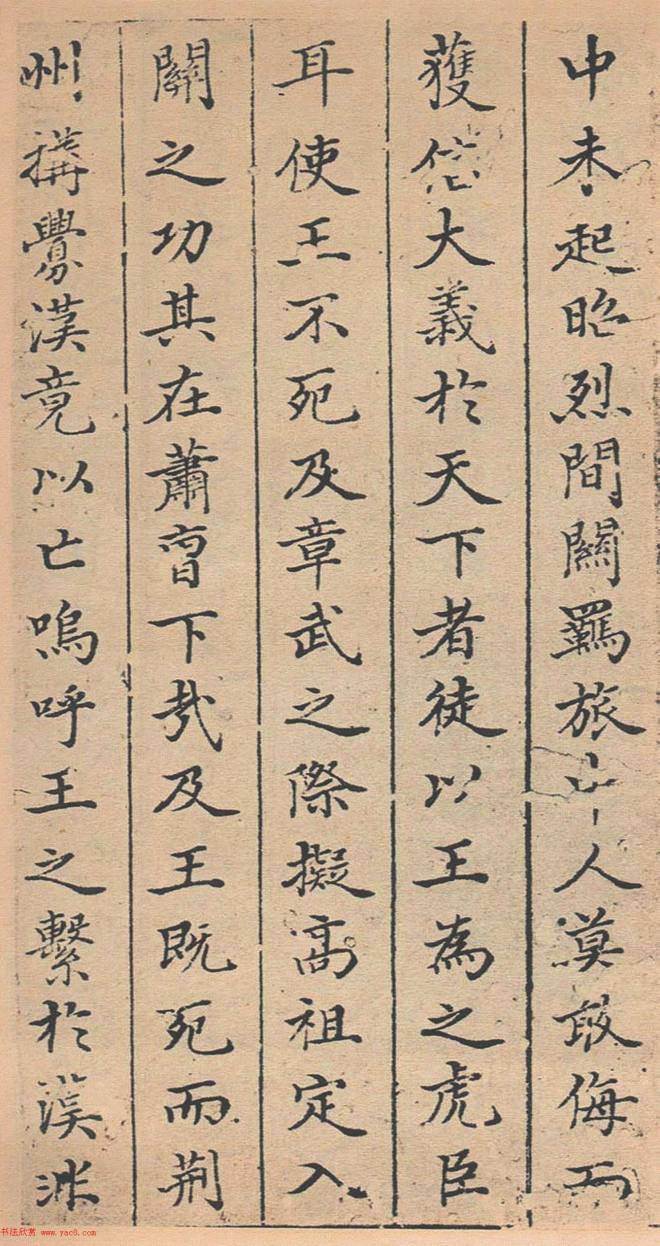 中未起昭烈間關羈旅中人莫敢侮而
獲信大義於天下者徒以王為之虎臣
耳使王不死及章武之際擬高祖定入
關之功其在蕭曹下哉及王既死而荊
州搆釁漢竟以亡嗚呼王之繫於漢非
书法欣赏 www.yac8.com